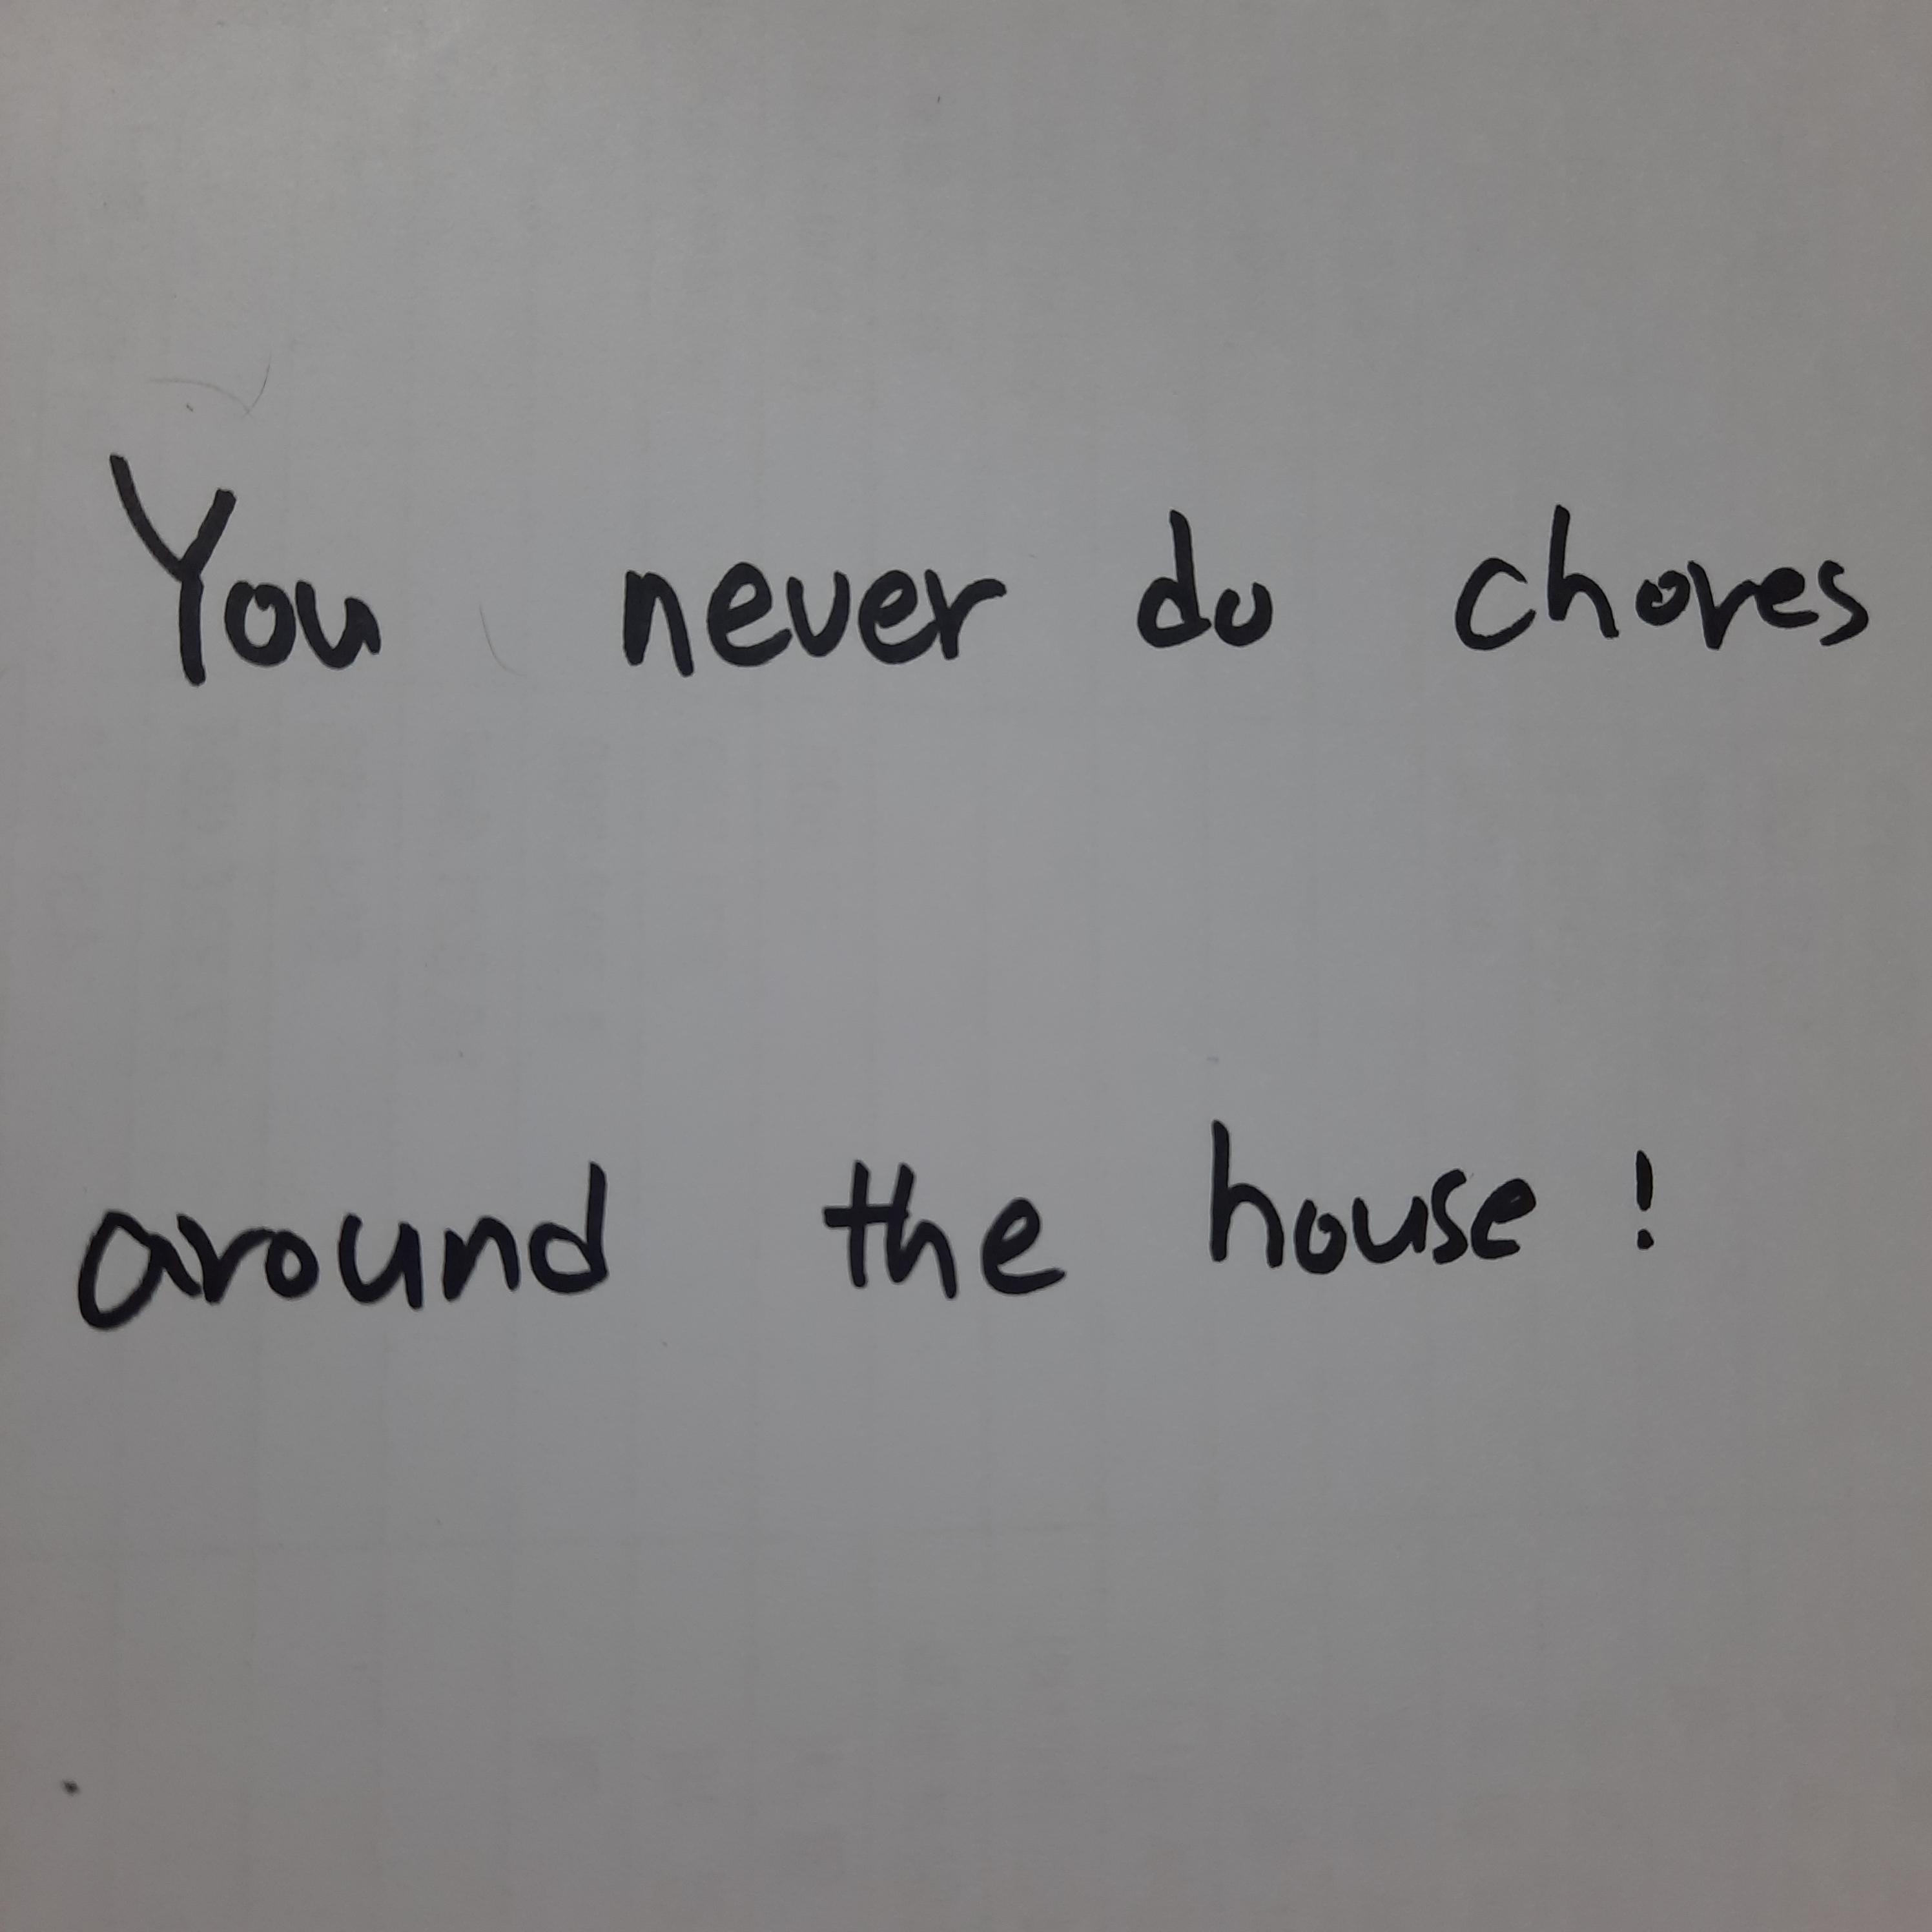 You never do chores
around the house!